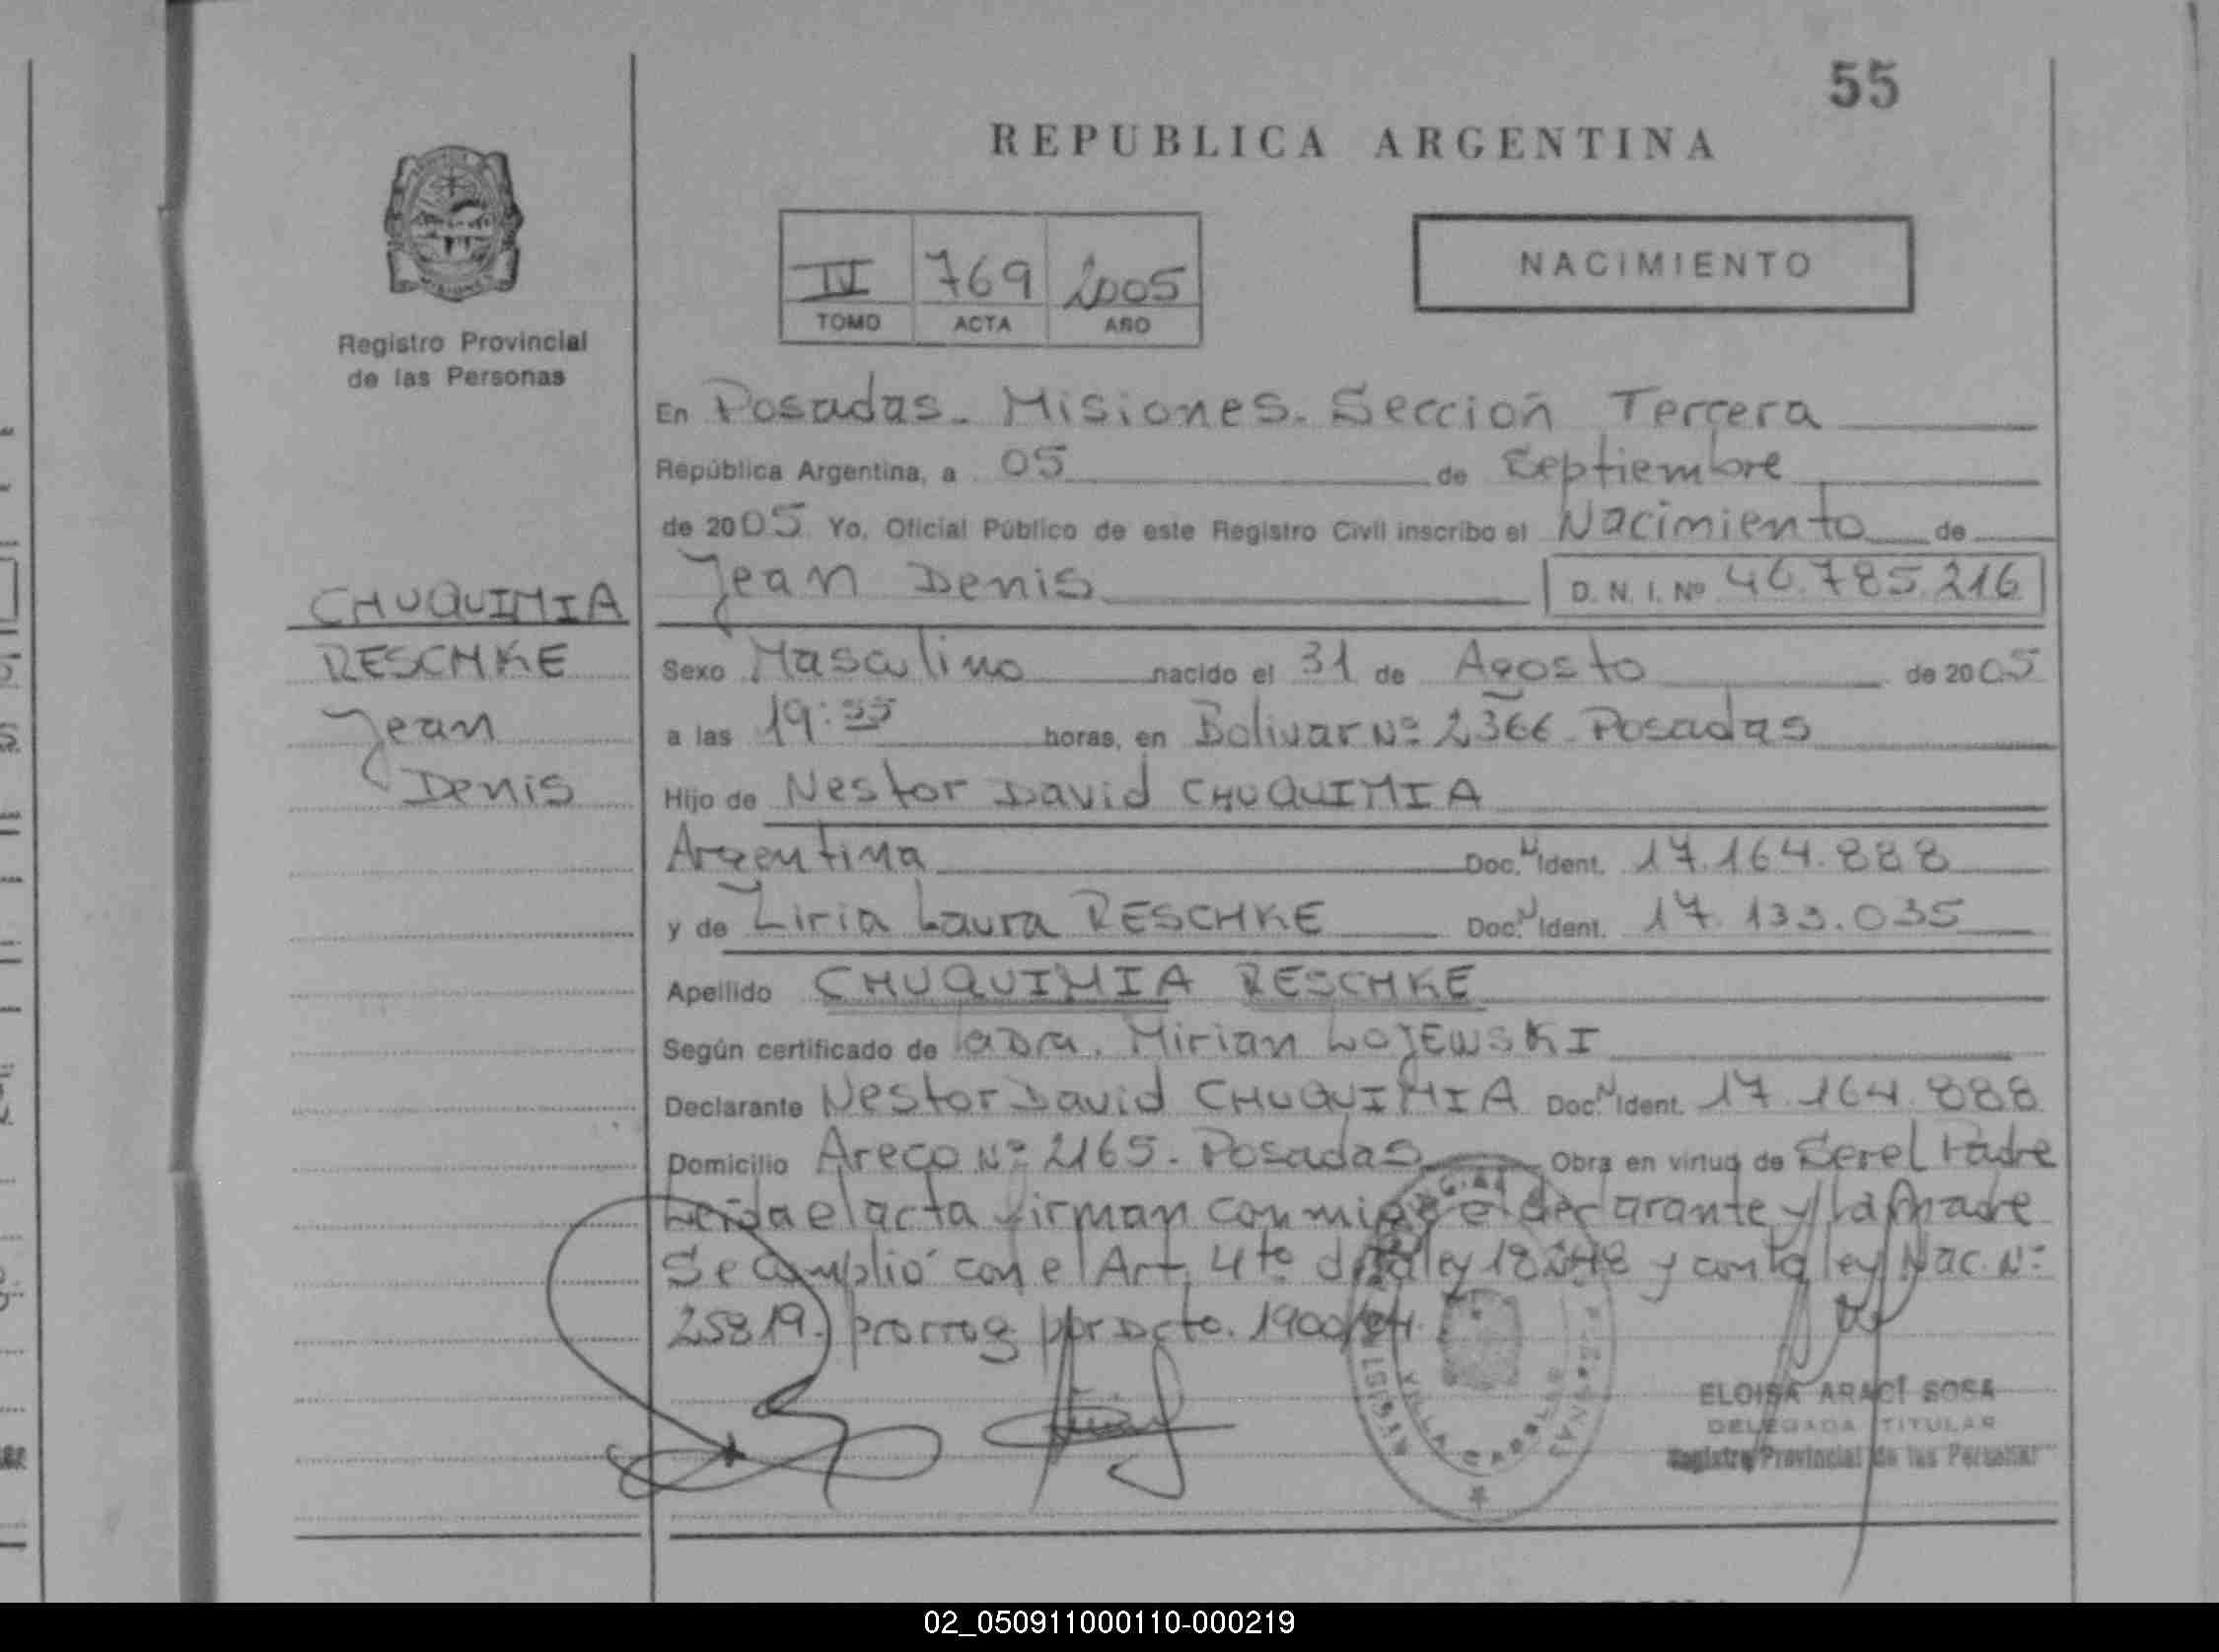 55
REPUBLICA ARGENTINA
IV 769 2005
TOMO ACTA AÑO
NACIMIENTO
Registro Provincial
de las Personas
En Posadas - Misiones - Sección Tercera
República Argentina, a 05 de Septiembre
de 2005 Yo, Oficial Público de este Registro Civil inscribo el Nacimiento de
Jean Denis D. N. I. Nº 46.785.216
CHUQUIMIA
RESCHKE
Jean
Denis
Sexo Masculino nacido el 31 de Agosto de 2005
a las 19: horas, en Bolivar Nº 2366 - Posadas
Hijo de Nestor David CHUQUIMIA
Argentina Doc. N Ident. 17.164.888
y de Liria Laura RESCHKE Doc. N Ident. 17.133.035
Apellido CHUQUIMIA RESCHKE
Según certificado de la Dra. Mirian WOJEWSKI
Declarante Nestor David CHUQUIMIA Doc. N Ident. 17.164.888
Domicilio Areco Nº 2165 - Posadas Obra en virtud de Ser el Padre
Leida el acta firman conmigo el declarante y la Madre
Se cumplió con el Art. 4to de la ley 18248 y con la ley Nac. Nº
25819. prorrog por Dcto. 1900/04.
ELOISA ARACÍ SOSA
DELEGADA TITULAR
Registro Provincial de las Personas
02_050911000110-000219